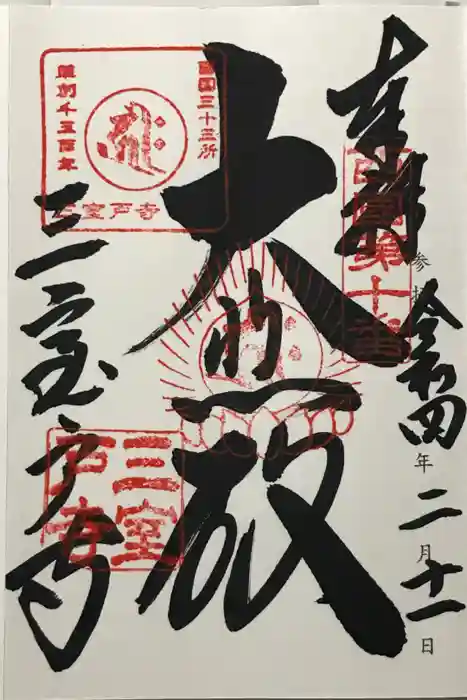 奉拝
西国第十番
参拝
令和四年二月十一日
大悲殿
西国三十三所
草創千三百年
三室戸寺
三室戸寺
三室戸寺